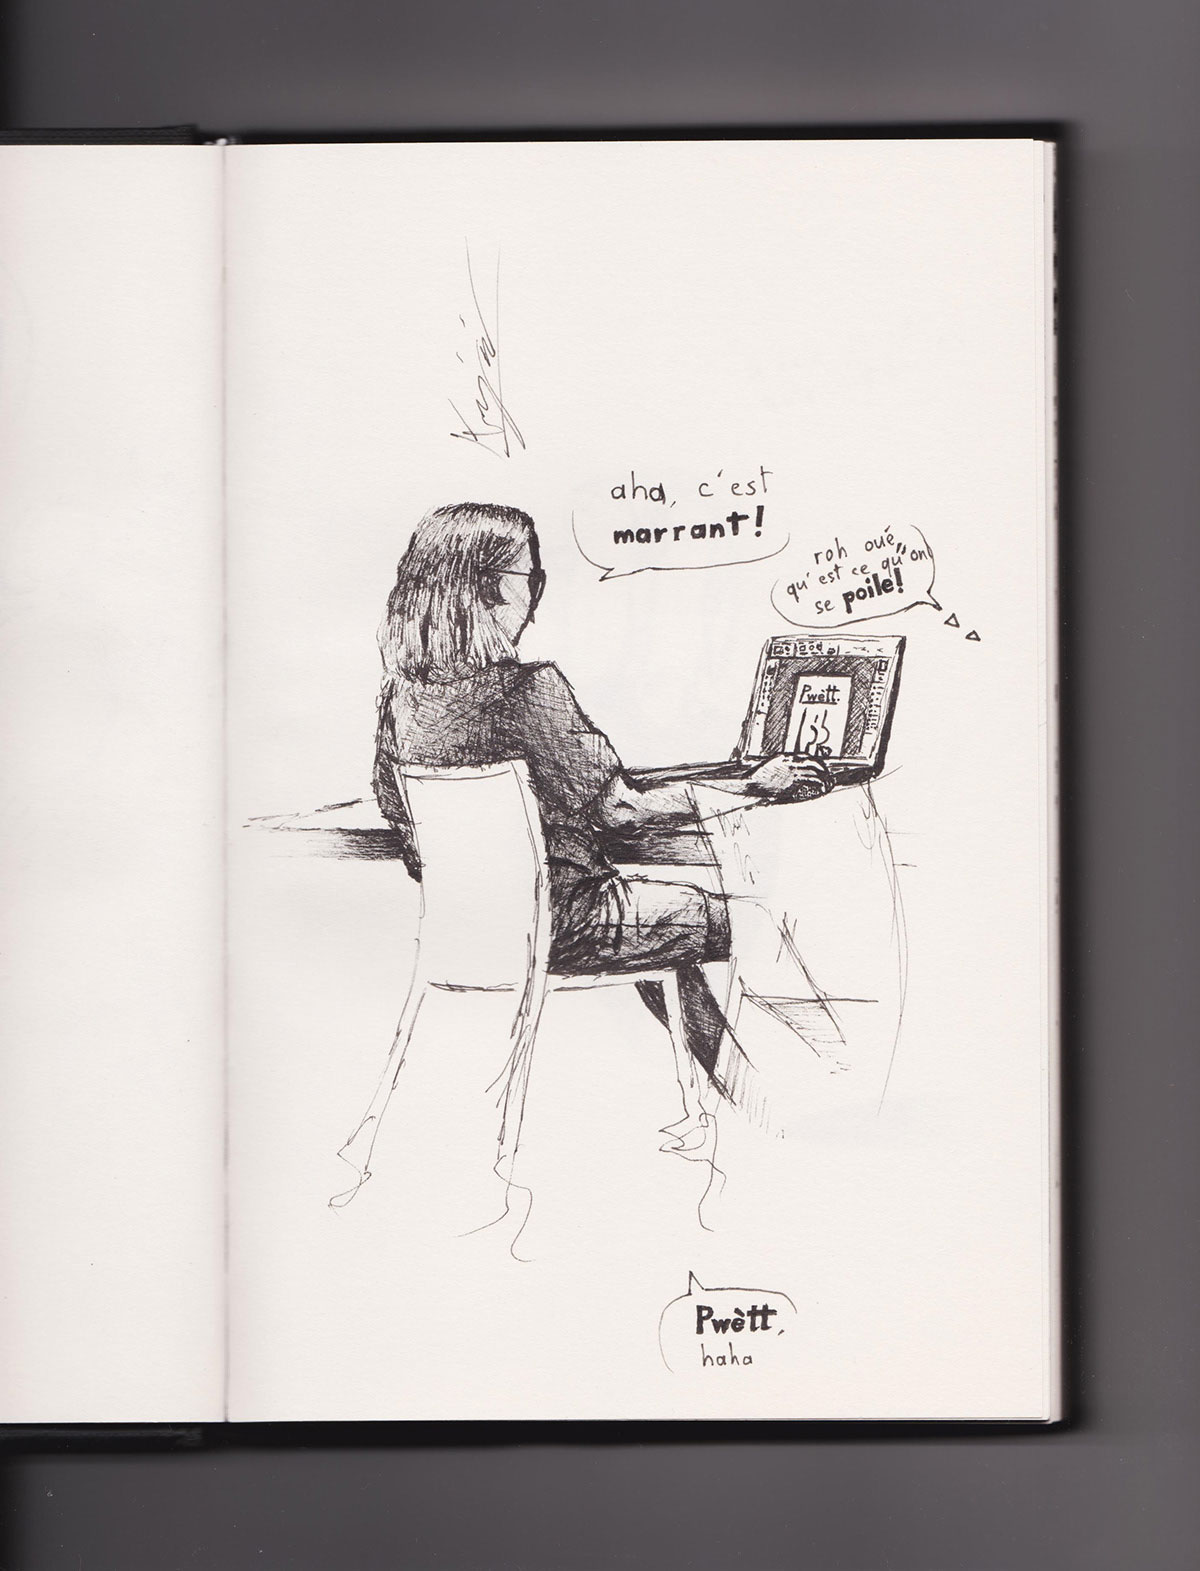 aha, c'est
marrant!
roh oué,
qu'est ce qu'on
se poile!
Pwètt.
Pwètt,
haha